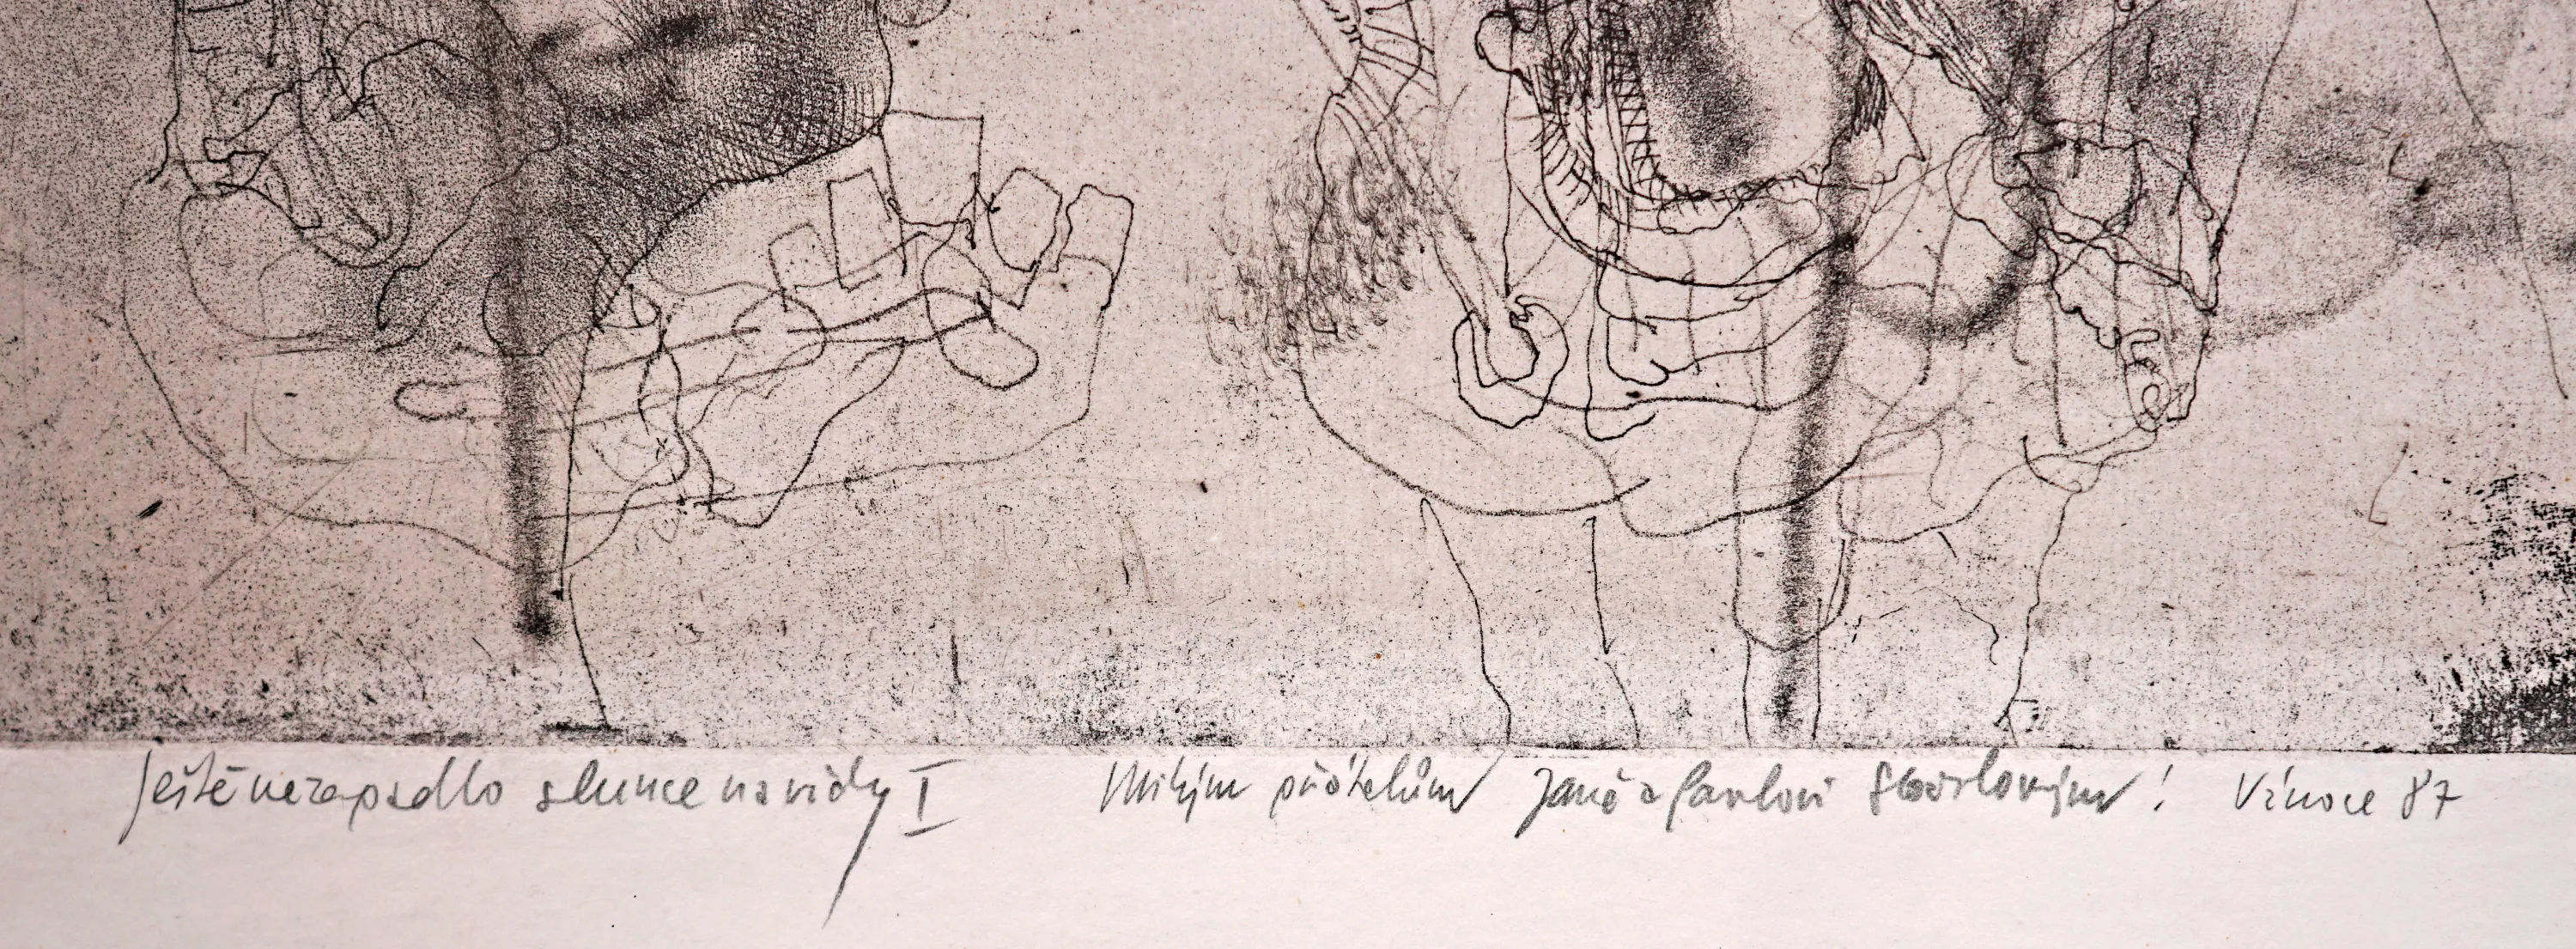 Ještě nezapadlo slunce navždy I Milým přátelům Janě a Pavlovi Vánoce 87